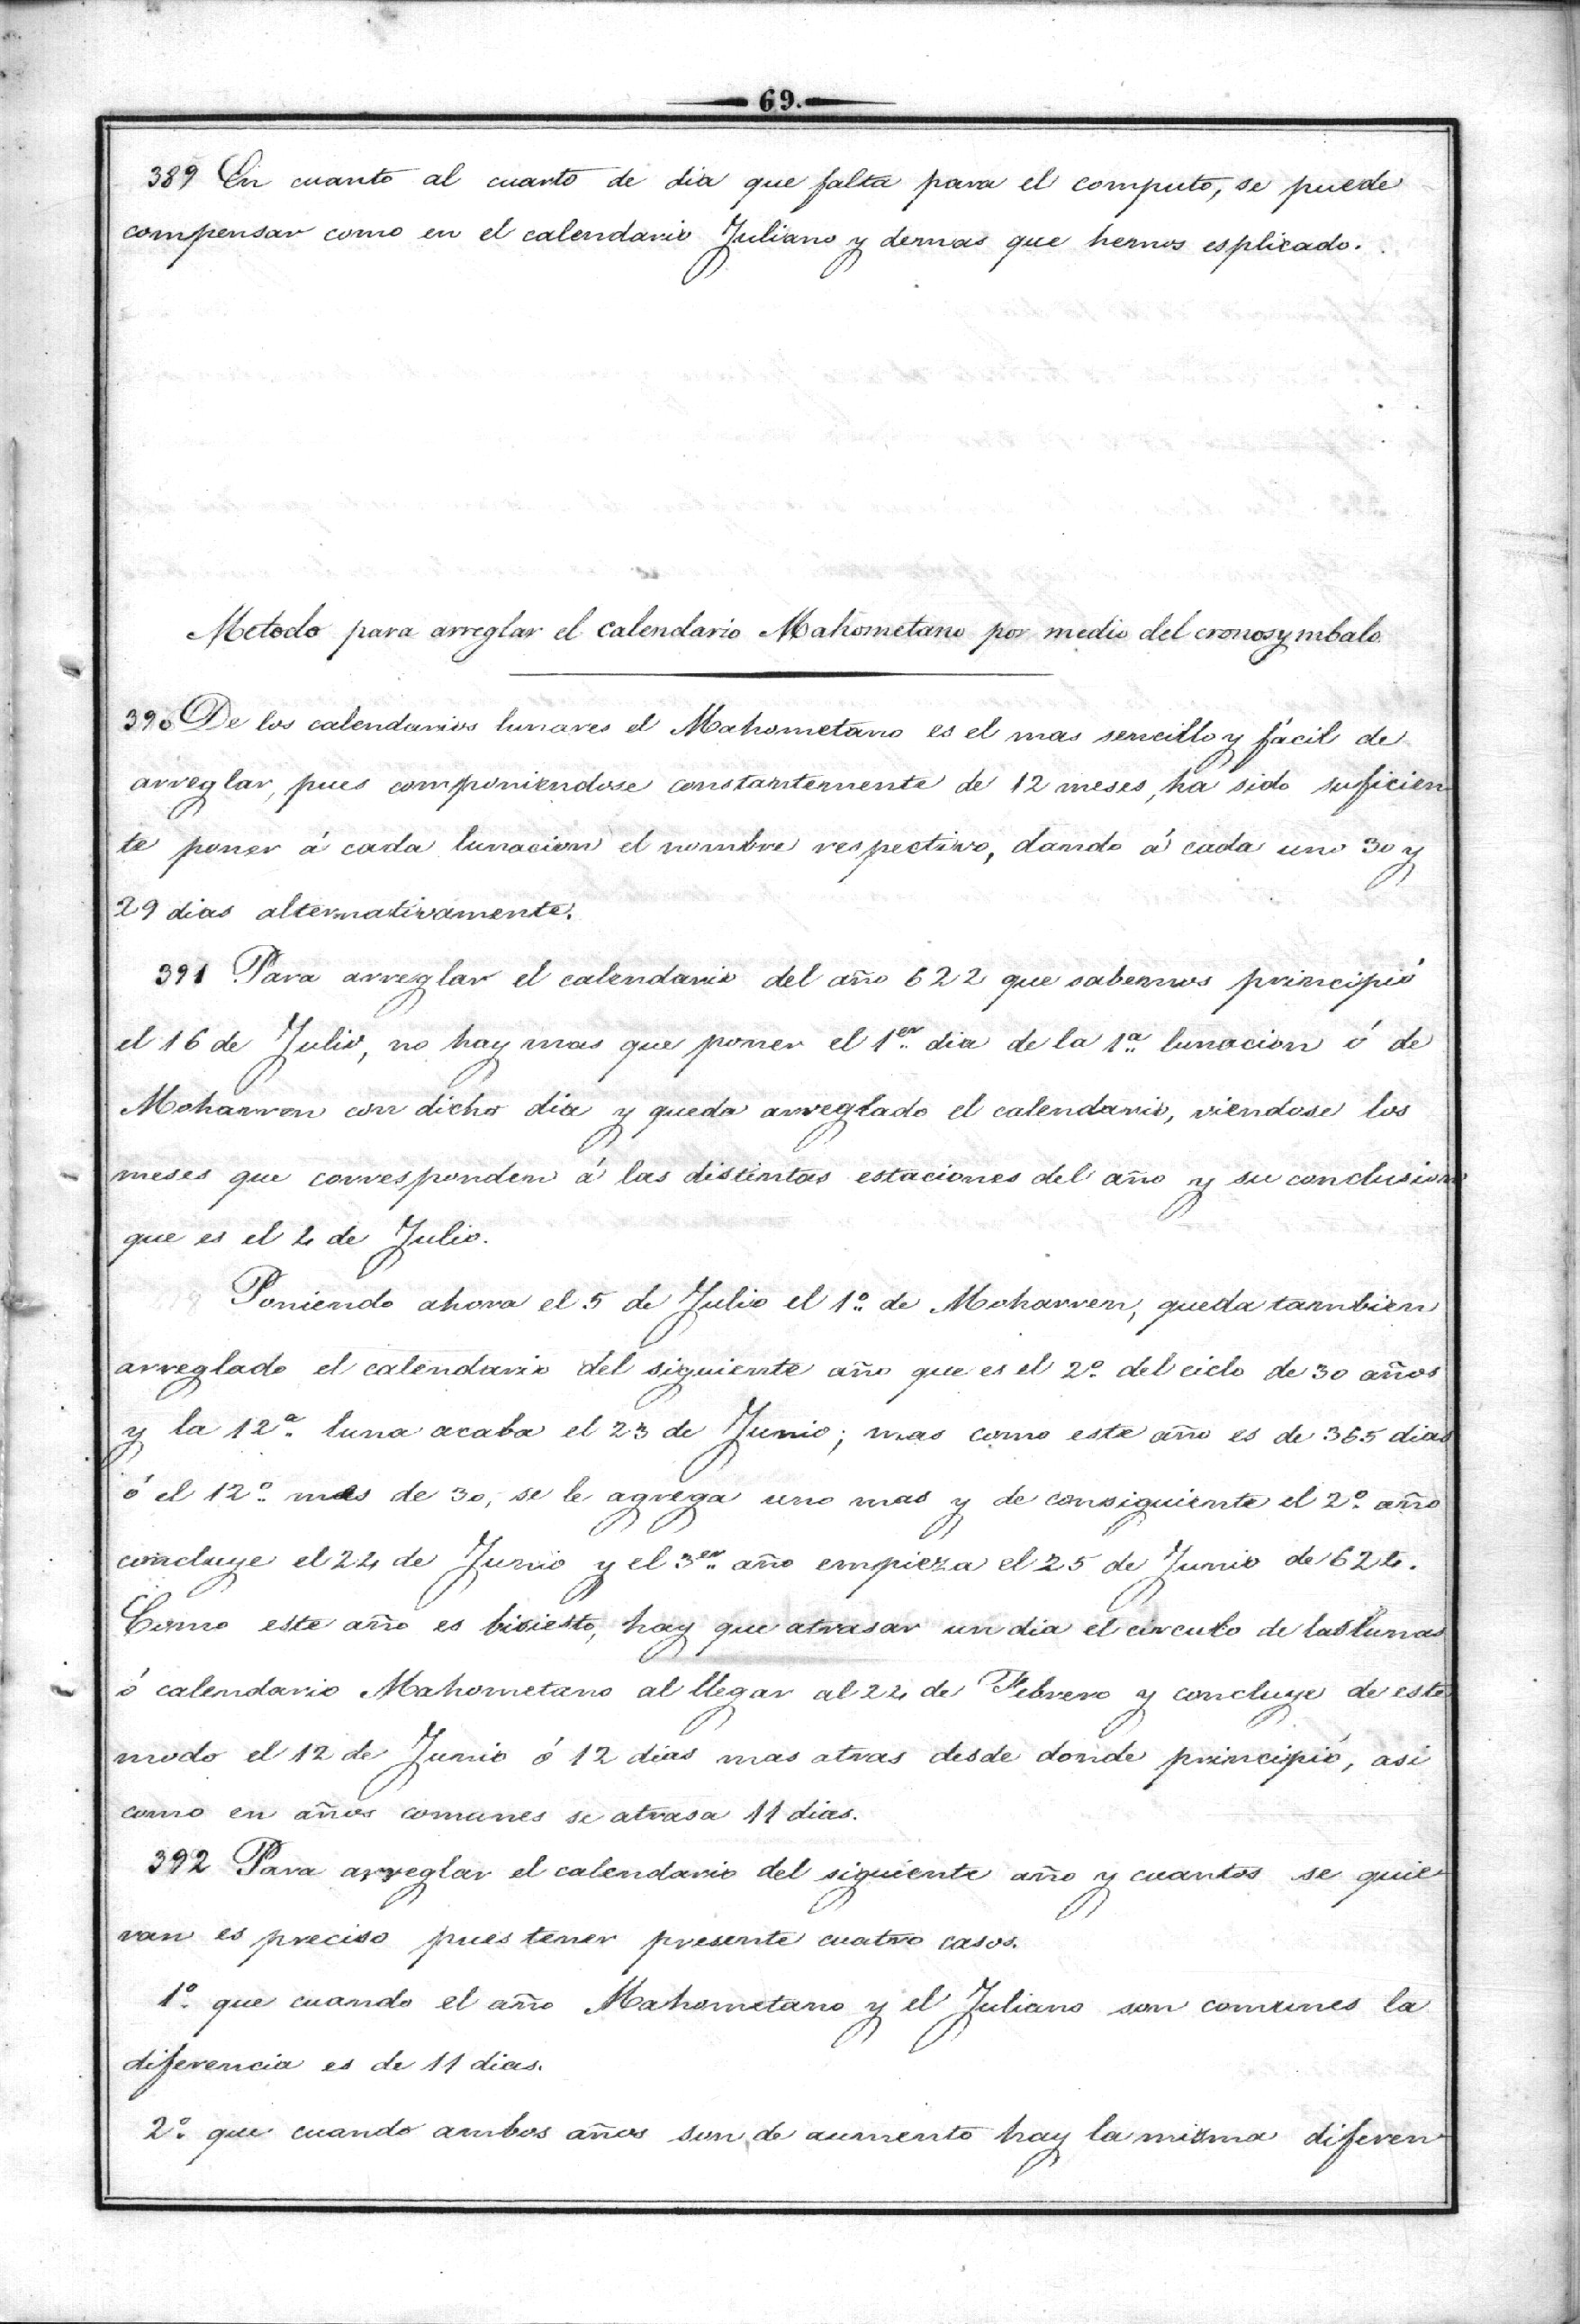 69.
389 En cuanto al cuarto de dia que falta para el computo, se puede
compensar como en el calendario Juliano y demas que hemos esplicado.
Metodo para arreglar el calendario Mahometano por medio del cronosymbalo
390 De los calendarios lunares el Mahometano es el mas sencillo y fácil de
arreglar, pues componiendose constantemente de 12 meses, ha sido suficien
te poner á cada lunacion el nombre respectivo, dando á cada uno 30 y
29 dias alternativamente.
391 Para arreglar el calendario del año 622 que sabemos principió
el 16 de Julio, no hay mas que poner el 1er. dia de la 1a. lunacion ó de
Moharren con dicho dia y queda arreglado el calendario, viendose los
meses que corresponden á las distintas estaciones del año y su conclusion
que es el 4 de Julio.
Poniendo ahora el 5 de Julio el 1o. de Moharren, queda tambien
arreglado el calendario del siguiente año que es el 2o. del ciclo de 30 años
y la 12a. luna acaba el 23 de Junio; mas como este año es de 365 dias
ó el 12o. mes de 30, se le agrega uno mas y de consiguiente el 2o. año
concluye el 24 de Junio y el 3er. año empieza el 25 de Junio de 624.
Como este año es bisiesto, hay que atrasar un dia el circulo de las lunas
ó calendario Mahometano al llegar al 24 de Febrero y concluye de este
modo el 12 de Junio ó 12 dias mas atras desde donde principió, asi
como en años comunes se atrasa 11 dias.
392 Para arreglar el calendario del siguiente año y cuantos se quie
ran es preciso pues tener presente cuatro casos.
1o. que cuando el año Mahometano y el Juliano son comunes la
diferencia es de 11 dias.
2o. que cuando ambos años son de aumento hay la misma diferen